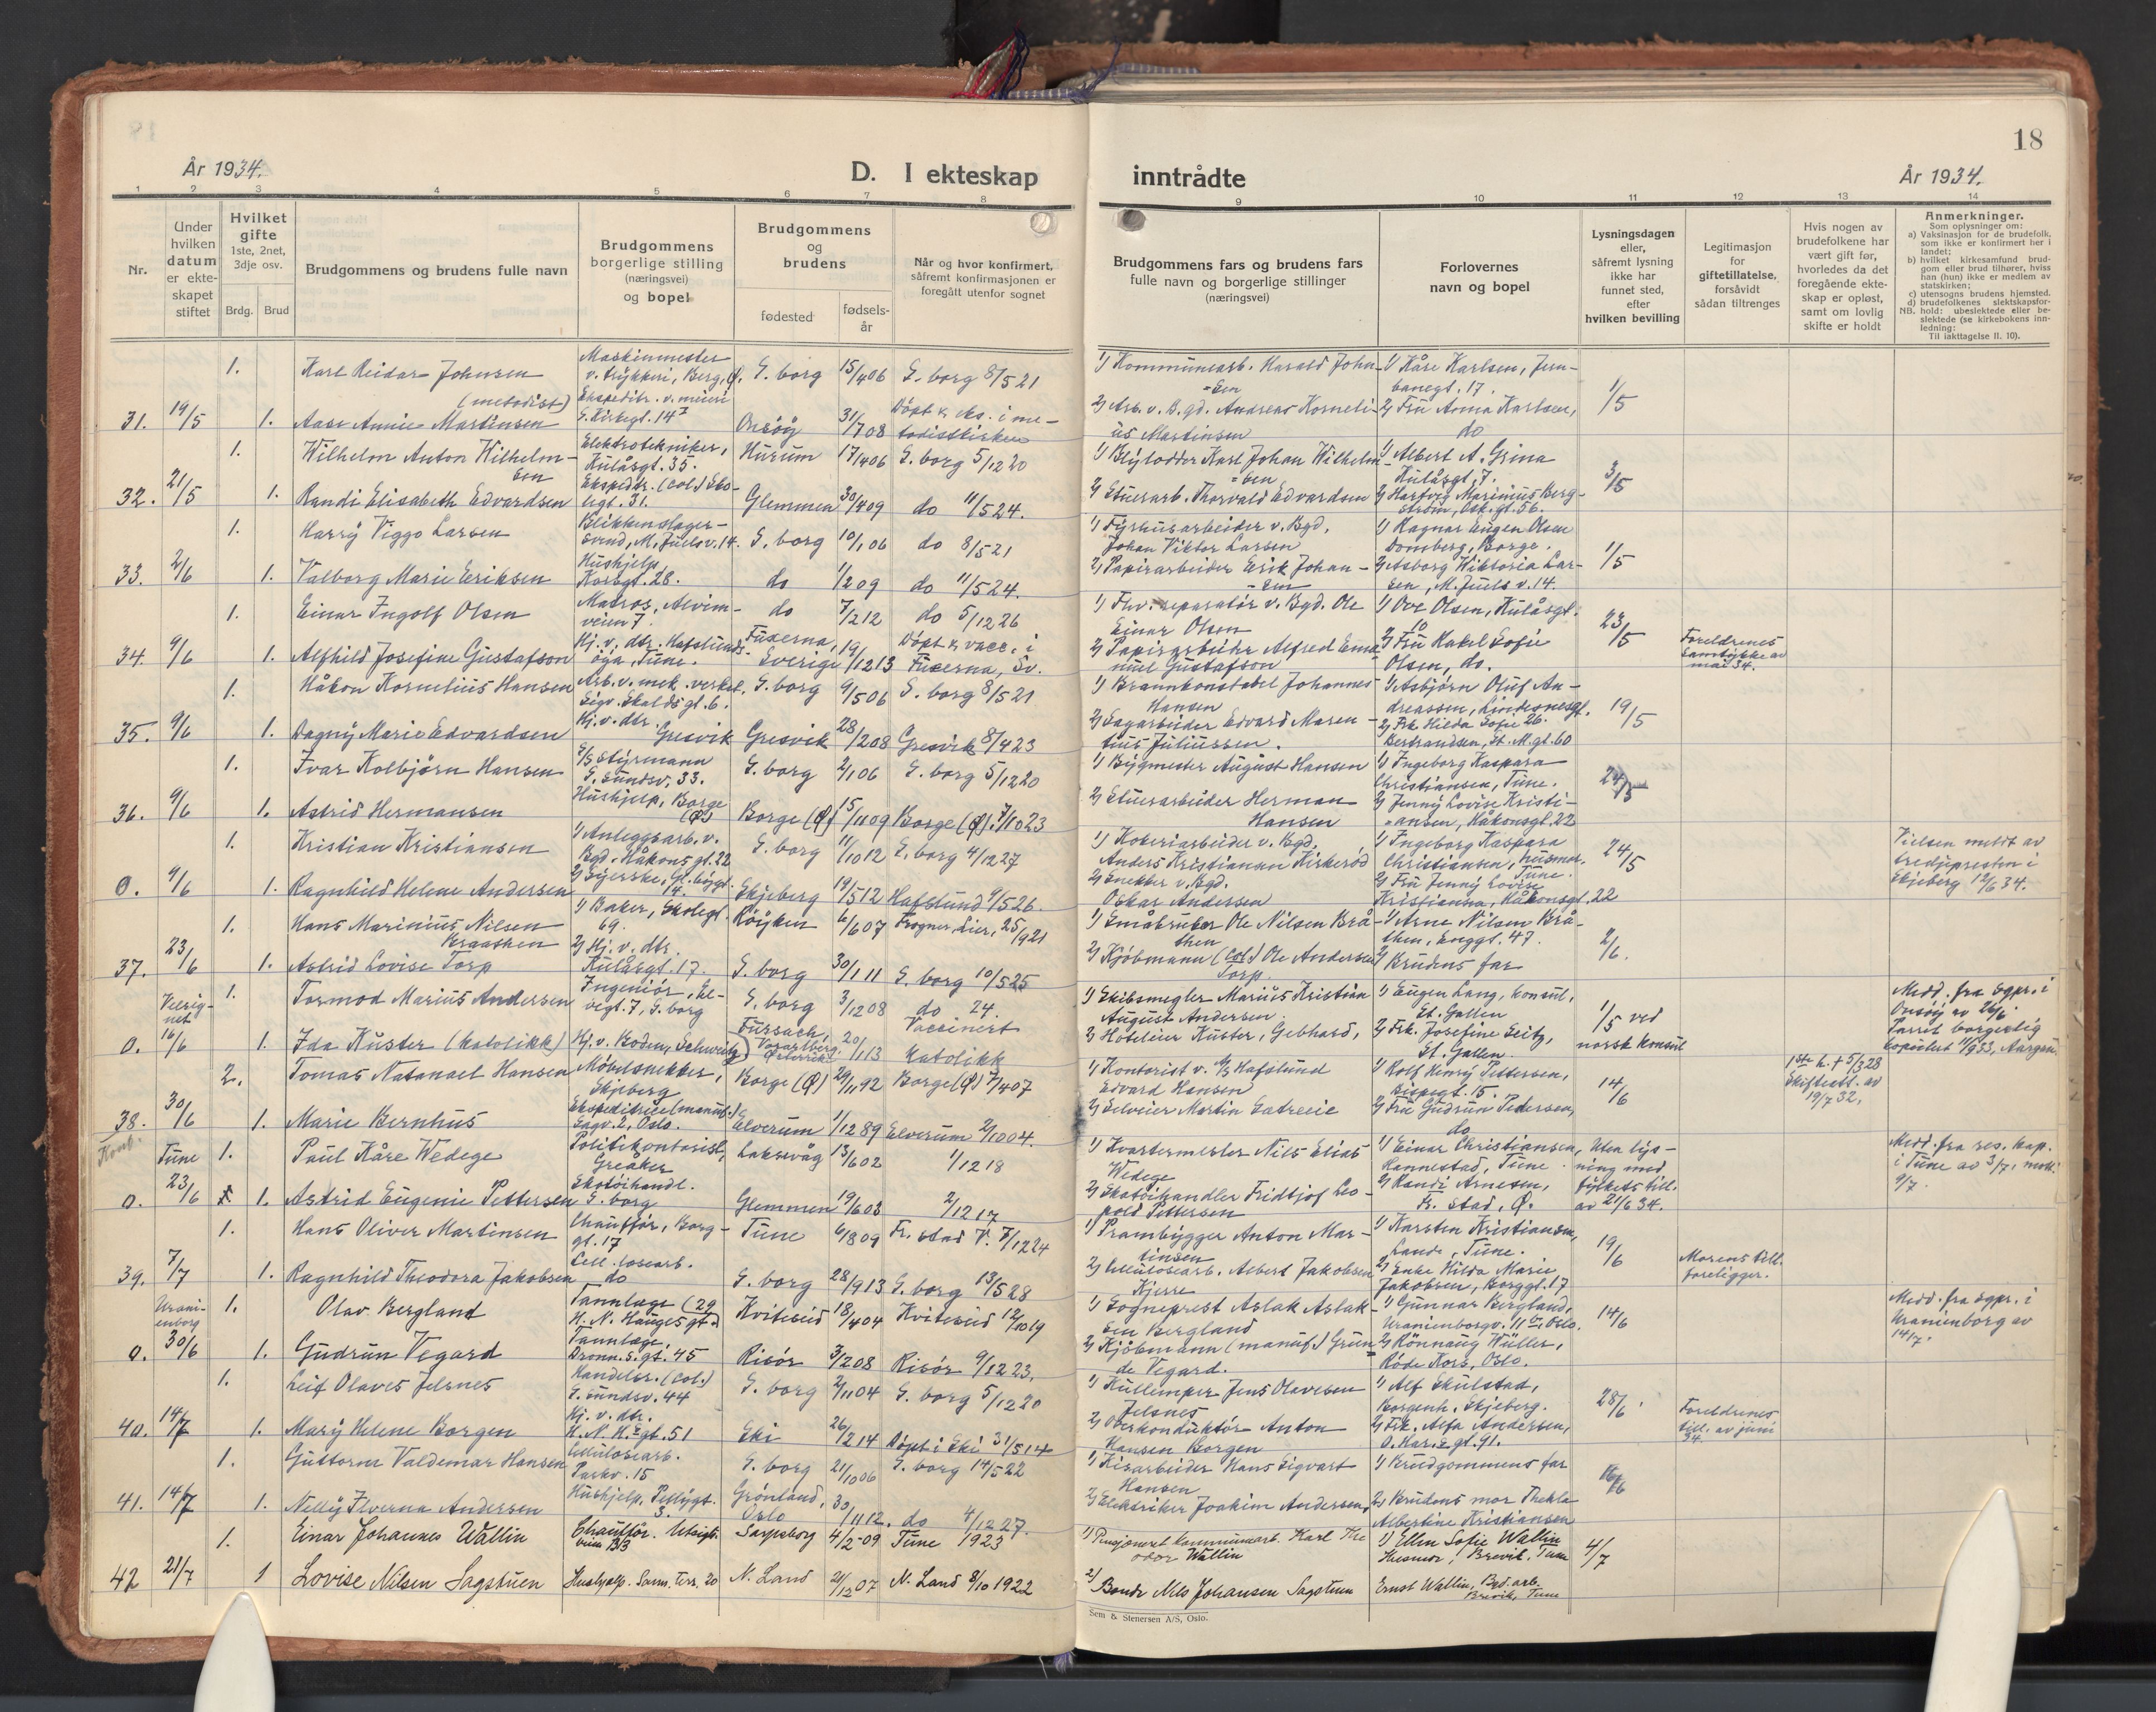 18
År 1934.
D. I ekteskap inntrådte
År 1934.
1 2 3 4 5 6 7 8 9 10 11 12 13 14
Nr.
Under hvilken datum er ekteskapet stiftet
Hvilket gifte 1ste, 2net, 3dje osv.
Brdg. Brud
Brudgommens og brudens fulle navn
Brudgommens borgerlige stilling (næringsvei) og bopel
Brudgommens og brudens
fødested
fødselsår
Når og hvor konfirmert, såfremt konfirmasjonen er foregått utenfor sognet
Brudgommens fars og brudens fars fulle navn og borgerlige stillinger (næringsvei)
Forlovernes navn og bopel
Lysningsdagen eller, såfremt lysning ikke har funnet sted, efter hvilken bevilling
Legitimasjon for giftetillatelse, forsåvidt sådan tiltrenges
Hvis nogen av brudefolkene har vært gift før, hvorledes da det foregående ekteskap er opløst, samt om lovlig skifte er holdt
Anmerkninger.
Som oplysninger om:
a) Vaksinasjon for de brudefolk, som ikke er konfirmert her i landet;
b) hvilket kirkesamfund brudgom eller brud tilhører, hviss han (hun) ikke er medlem av statskirken;
c) utensogns brudens hjemsted.
d) brudefolkenes slektskapsforhold: ubeslektede eller beslektede (se kirkebokens innledning:
NB. Til iakttagelse II. 10).
1. Karl Reidar Johnsen Maskinmester v. trykkeri, Berg, Ø. S. borg 15/4 06 S. borg 8/5 21 1) Kommunearb. Harald Johnsen 1) Kåre Karlsen, Jernbanegt. 17.
31. 19/5 1. Aase Annie Martinsen (metodist) Ekspeditr. v. meieri S. Kirkegt. 14 Onsøy 31/7 08 Døpt i metodistkirken 2) Arb. v. B.gd. Andreas Kornelius Martinsen 2) Fru Anna Karlsen, do 1/5
1. Wilhelm Anton Wilhelmsen Elektrotekniker, Kulåsgt. 35. Hurum 17/4 06 S. borg 5/12 20 1) Blylodder Karl Johan Wilhelmsen 1) Albert A. Grina Kulåsgt. 7.
32. 21/5 1. Randi Elisabeth Edvardsen Ekspeditr. (col.) Skolegt. 31. Glemmen 30/4 09 do 11/5 24. 2) Stuerarb. Thorvald Edvardsen 2) Hartvig Marinius Bergstrøm, Osk. gt. 56. 3/5
1. Harry Viggo Larsen Blikkenslagersvend, M. Juels v. 14. S. borg 10/1 06 do 8/5 21 1) Fyrhusarbeider v. Bgd. Johan Viktor Larsen 1) Ragnar Eugen Olsen Domberg, Borge.
33. 2/6 1. Valborg Marie Eriksen Hushjelp, Korsgt. 28. do 1/2 09 do 11/5 24. 2) Papirarbeider Erik Johansen 2) Aasborg Viktoria Larsen, M. Juels v. 14. 1/5
1. Einar Ingolf Olsen Matros, Alvimveien 7. do 7/2 12 do 5/12 26 1) Fhv. reparatør v. Bgd. Ole Einar Olsen 1) Ove Olsen, Kulåsgt. 10
34. 9/6 1. Alfhild Josefine Gustafson Hj. v. dtr. Hafslundsøya, Tune. Fuxerna, Sverige 19/12 13 Døpt & vacc. i Fuxerna, Sv. 2) Papirarbeider Alfred Emanuel Gustafson 2) Fru Rakel Sofie Olsen, do. 23/5 Foreldrenes samtykke av mai 34.
1. Håkon Kornelius Hansen Arb. v. mek. verksted, Sigv. Skaldsgt. 6. S. borg 9/5 06 S. borg 8/5 21 1) Brannkonstabel Johannes Hansen 1) Asbjørn Oluf Andreassen, Lindesnesgt. 26.
35. 9/6 1. Dagny Marie Edvardsen Hj. v. dtr. Gresvik Gresvik 28/2 08 Gresvik 8/4 23 2) Sagarbeider Edvard Marentius Juliussen. 2) Frk. Hilda Sofie Bertrandsen, St. M. gt. 60 19/5
1. Ivar Kolbjørn Hansen Styrmann S. Sundsv. 33. S. borg 2/1 06 S. borg 5/12 20 1) Bygmester August Hansen 1) Ingeborg Kaspara Christiansen, Tune.
36. 9/6 1. Astrid Hermansen Hushjelp, Borge (Ø) Borge (Ø) 15/11 09 Borge (Ø) 7/10 23 2) Stuerarbeider Herman Hansen 2) Jenny Lovise Kristiansen, Håkonsgt. 22 24/5
1. Kristian Kristiansen 1) Anleggsarb. v. Bgd. Håkonsgt. 22 S. borg 11/10 12 S. borg 4/12 27 1) Kokeriarbeider v. Bgd. Anders Kristiansen Kirkerød 1) Ingeborg Kaspara Christiansen, husmor, Tune.
0. 9/6 1. Ragnhild Helene Andersen 2) Syerske, 14. Skjeberg 19/5 12 Hafslund 9/5 26. 2) Snekker v. Bgd. Oskar Andersen 2) Fru Jenny Lovise Kristiansen, Håkonsgt. 22 24/5 Vielsen meldt av tredjepresten i Skjeberg 12/6 34.
1. Hans Marinius Nilsen Braathen 1) Baker, Skolegt. 69. Røyken 6/6 07 Frogner, Lier, 25/9 21 1) Småbruker Ole Nilsen Bråthen 1) Arne Nilsen Bråthen, Enggt. 47.
37. 23/6 1. Astrid Lovise Torp 2) Hj. v. dtr. Kulåsgt. 17. S. borg 30/1 11 S. borg 10/5 25 2) Kjøbmann (col.) Ole Andersen Torp. 2) Brudens far 2/6.
Velsignet 1. Tormod Marius Andersen Ingeniør, 7, S. borg S. borg 3/12 08 do 24. 1) Skibsmegler Marius Kristian August Andersen. 1) Eugen Lang, konsul, St. Gallen
0. 16/6 1. Ida Kuster (katolikk) Hj. v. Boden, Schweitz Fussach, Vorarlberg, Østerrike 20/1 13 Vaccinert Katolikk 2) Hoteleier Kuster, Gebhard, 2) Frk. Josefine Seitz, St. Gallen. 1/5 ved norsk konsul Medd. fra sgpr. i Onsøy av 26/6. Parret borgerlig copulert 11/9 33, Aargau.
2. Tomas Natanael Hansen Møbelsnekker, Skjeberg Borge (Ø) 29/11 92 Borge (Ø) 7/4 07 1) Kontorist v. A/S Hafslund Edvard Hansen 1) Rolf Henry Pettersen, Bispegt. 15. 1ste h. † 5/3 28 Skifteatt. av 19/7 32.
38. 30/6 1. Marie Bernhus Ekspeditrice (manuf.) Sagv. 2, Oslo. Elverum 1/12 89 Elverum 2/10 04. 2) Selveier Martin Satreeie 2) Fru Gudrun Pedersen, do 14/6
Tune 1. Paul Kåre Wedege Politikontorist, Greåker Laksevåg 13/6 02 1/12 18 1) Kvartermester Nils Elias Wedege 1) Einar Christiansen, Rannestad, Tune. Uten lysning med fylkets till. av 21/6 34.
0. 23/6 1. Astrid Eugenie Pettersen Skotøihandl. S. borg Glemmen 19/6 03 2/12 17 2) Skotøihandler Fridtjof Leopold Pettersen 2) Randi Arnesen, Fr. stad, Ø. Medd. fra res. kap. i Tune av 3/7, mott. 9/7.
1. Hans Oliver Martinsen Chauffør, Borggt. 17 Tune 6/8 09 Fr. stad V. 7/12 24 1) Prambygger Anton Martinsen 1) Karsten Kristiansen, Lande, Tune.
39. 7/7 1. Ragnhild Theodora Jakobsen Cellulosearb. do S. borg 28/9 13 S. borg 13/5 28 2) Cellulosearb. Albert Jakobsen Kjerre 2) Enke Hilda Marie Jakobsen, Borggt. 17 19/6 Morens till. foreligger.
Uranienborg 1. Olav Bergland Tannlæge H. N. Haugesgt. 29 Kviteseid 18/4 04 Kviteseid 12/10 19 1) Sogneprest Aslak Aslaksen Bergland 1) Gunnar Bergland, Uranienborgv. 11, Oslo. 14/6
0. 30/6 1. Gudrun Vegard Tannlæge, Dronn. S. gt. 45 Risør 3/2 08 Risør 9/12 23. 2) Kjøbmann (manuf.) Grunde Vegard. 2) Rønnaug Wüller, Røde Kors, Oslo. Medd. fra sgpr. i Uranienborg av 14/7.
1. Leif Olaves Jelsnes Handelsr. (col.) S. Sundsv. 44 S. borg 2/11 04 S. borg 5/12 20 1) Kullemper Jens Olavesen Jelsnes 1) Alf Skulstad, Borgenh. Skjeberg.
40. 14/7 1. Mary Helene Borgen Hj. v. dtr. H. N. H. gt. 51 Ski 26/2 14 Døpt i Ski 31/5 14 2) Overkonduktør Anton Hansen Borgen 2) Frk. Alfa Andersen, O. Har.s gt. 91. 28/6 Foreldrenes till. av juni 34.
1. Guttorm Valdemar Hansen Cellulosearb. Parkv. 15 S. borg 21/10 06 S. borg 14/5 22 1) Kisarbeider Hans Sigvart Hansen 1) Brudgommens far
41. 14/7 1. Nelly Iverna Andersen Hushjelp, 3. Grønland, Oslo 30/11 12. do 4/12 27. 2) Elektriker Joakim Andersen, 2) Brudens mor Thekla Albertine Kristiansen
1. Einar Johannes Wallin Chauffør. Sarpsborg 4/2-09 Tune 1923 1) Pensjonert kommunearb. Karl Theodor Wallin 1) Ellen Sofie Wallin Husmor, Brevik, Tune 4/7
42 21/7 1 Lovise Nilsen Sagstuen Hushjelp. Sann. Ters. 20 N. Land 21/12 07 N. Land 8/10 1922 2) Bonde Nils Johansen Sagstuen Ernst Wallin, Bgd. arb. Brevik, Tune
Sem & Stenersen A/S, Oslo.